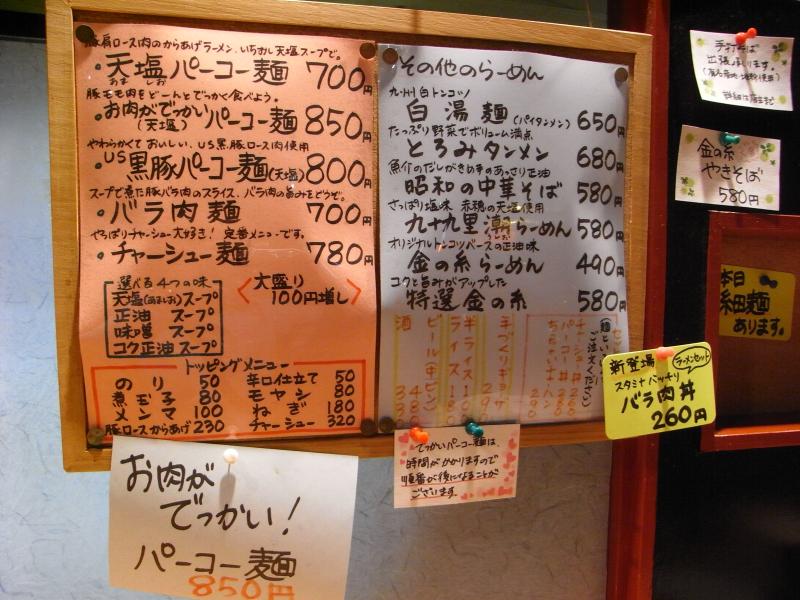 豚肩ロース肉のからあげラーメン、いちおし天塩スープで。
・天塩パーコー麺 700円
あましお
豚モモ肉をどーんとでっかく食べよう。
・お肉がでっかいパーコー麺 850円
(天塩)
やわらかくておいしい、US黒豚ロース肉使用
・US黒豚パーコー麺(天塩) 800円
スープで煮た豚バラ肉のスライス、バラ肉のあみをどうぞ。
・バラ肉麺 700円
やっぱりチャーシュー大好き！定番メニューです。
・チャーシュー麺 780円
選べる4つの味
天塩(あましお)スープ
正油 スープ
味噌 スープ
コク正油 スープ
大盛り
100円増し
トッピングメニュー
のり 50
煮玉子 80
メンマ 100
豚ロースからあげ 230
辛口仕立て 50
モヤシ 80
ねぎ 180
チャーシュー 320
その他のらーめん
九州白トンコツ
白湯麺(パイタンメン) 650円
たっぷり野菜でボリューム満点
とろみタンメン 680円
魚介のだしがきめ手のあっさり正油
昭和の中華そば 580円
さっぱり塩味 赤穂の天塩使用
九十九里潮らーめん 580円
オリジナルトンコツベースの正油味
金の糸らーめん 490円
コクと旨みがアップした
特選金の糸 580円
手づくりギョウザ 290
半ライス 1
ライス 180
ビール(中ビン) 480
酒 3
麺といっしょに
ご注文ください
お肉が
でっかい！
パーコー麺
850円
でっかいパーコー麺は、
時間がかかりますので
順番が後になることが
ございます。
新登場 ラーメンセット
スタミナバッチリ
バラ肉丼
260円
手打そば
出張
金の糸
やきそば
580円
本日
糸田麺
あります。